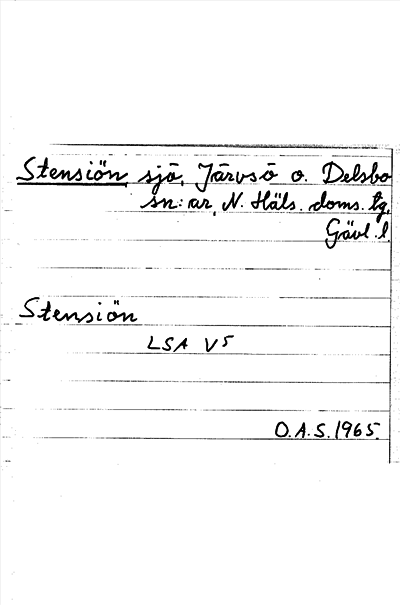 Stensiön sjö, Järvsö o. Delsbo
sn:ar, N. Häls. doms. tg,
Gävl. l.
Stensiön
LSA V5
O.A.S. 1965.